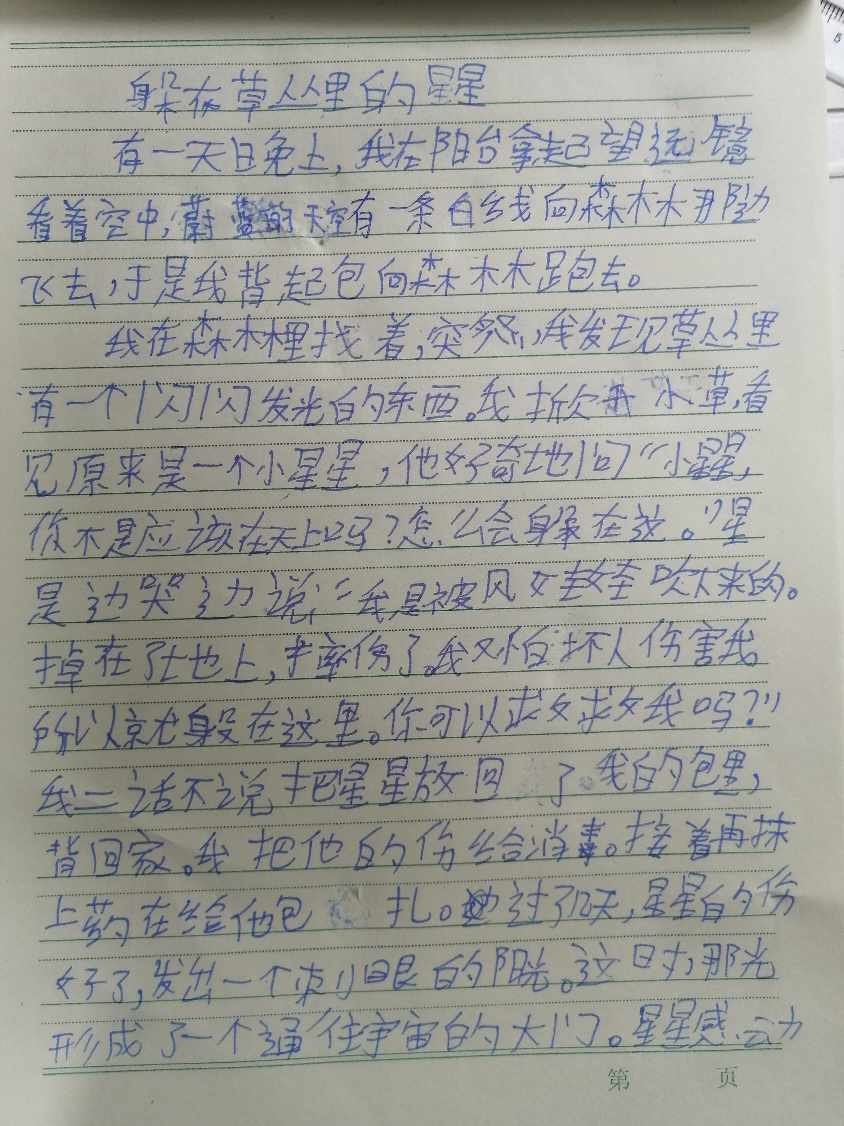 躲在草丛里的星星
有一天日免上，我在阳台拿起望远镜
看着空中，蔚蓝的天空有一条白线向森林木那边
飞去，于是我背起包向森林木跑去。
我在森林裡找着，突然，我发现见草丛里
有一个闪闪发光的东西。我掀开小草，看
见原来是一个小星星，他好奇地问"小星星，
你不是应该在天上吗？怎么会躲在这。"星
是边哭边说："我是被风娃娃吹下来的。
掉在了地上，摔伤了。我又怕坏人伤害我
所以就躲在这里。你可以求救救我吗？"
我二话不说把星星放回了。我的包里，
背回家。我把他的伤给消毒。接着再抹
上药在给他包扎。过了几天，星星的伤
好了，发出一个刺眼的阳光。这时，那光
形成了一个通往宇宙的大门。星星感动
第 页